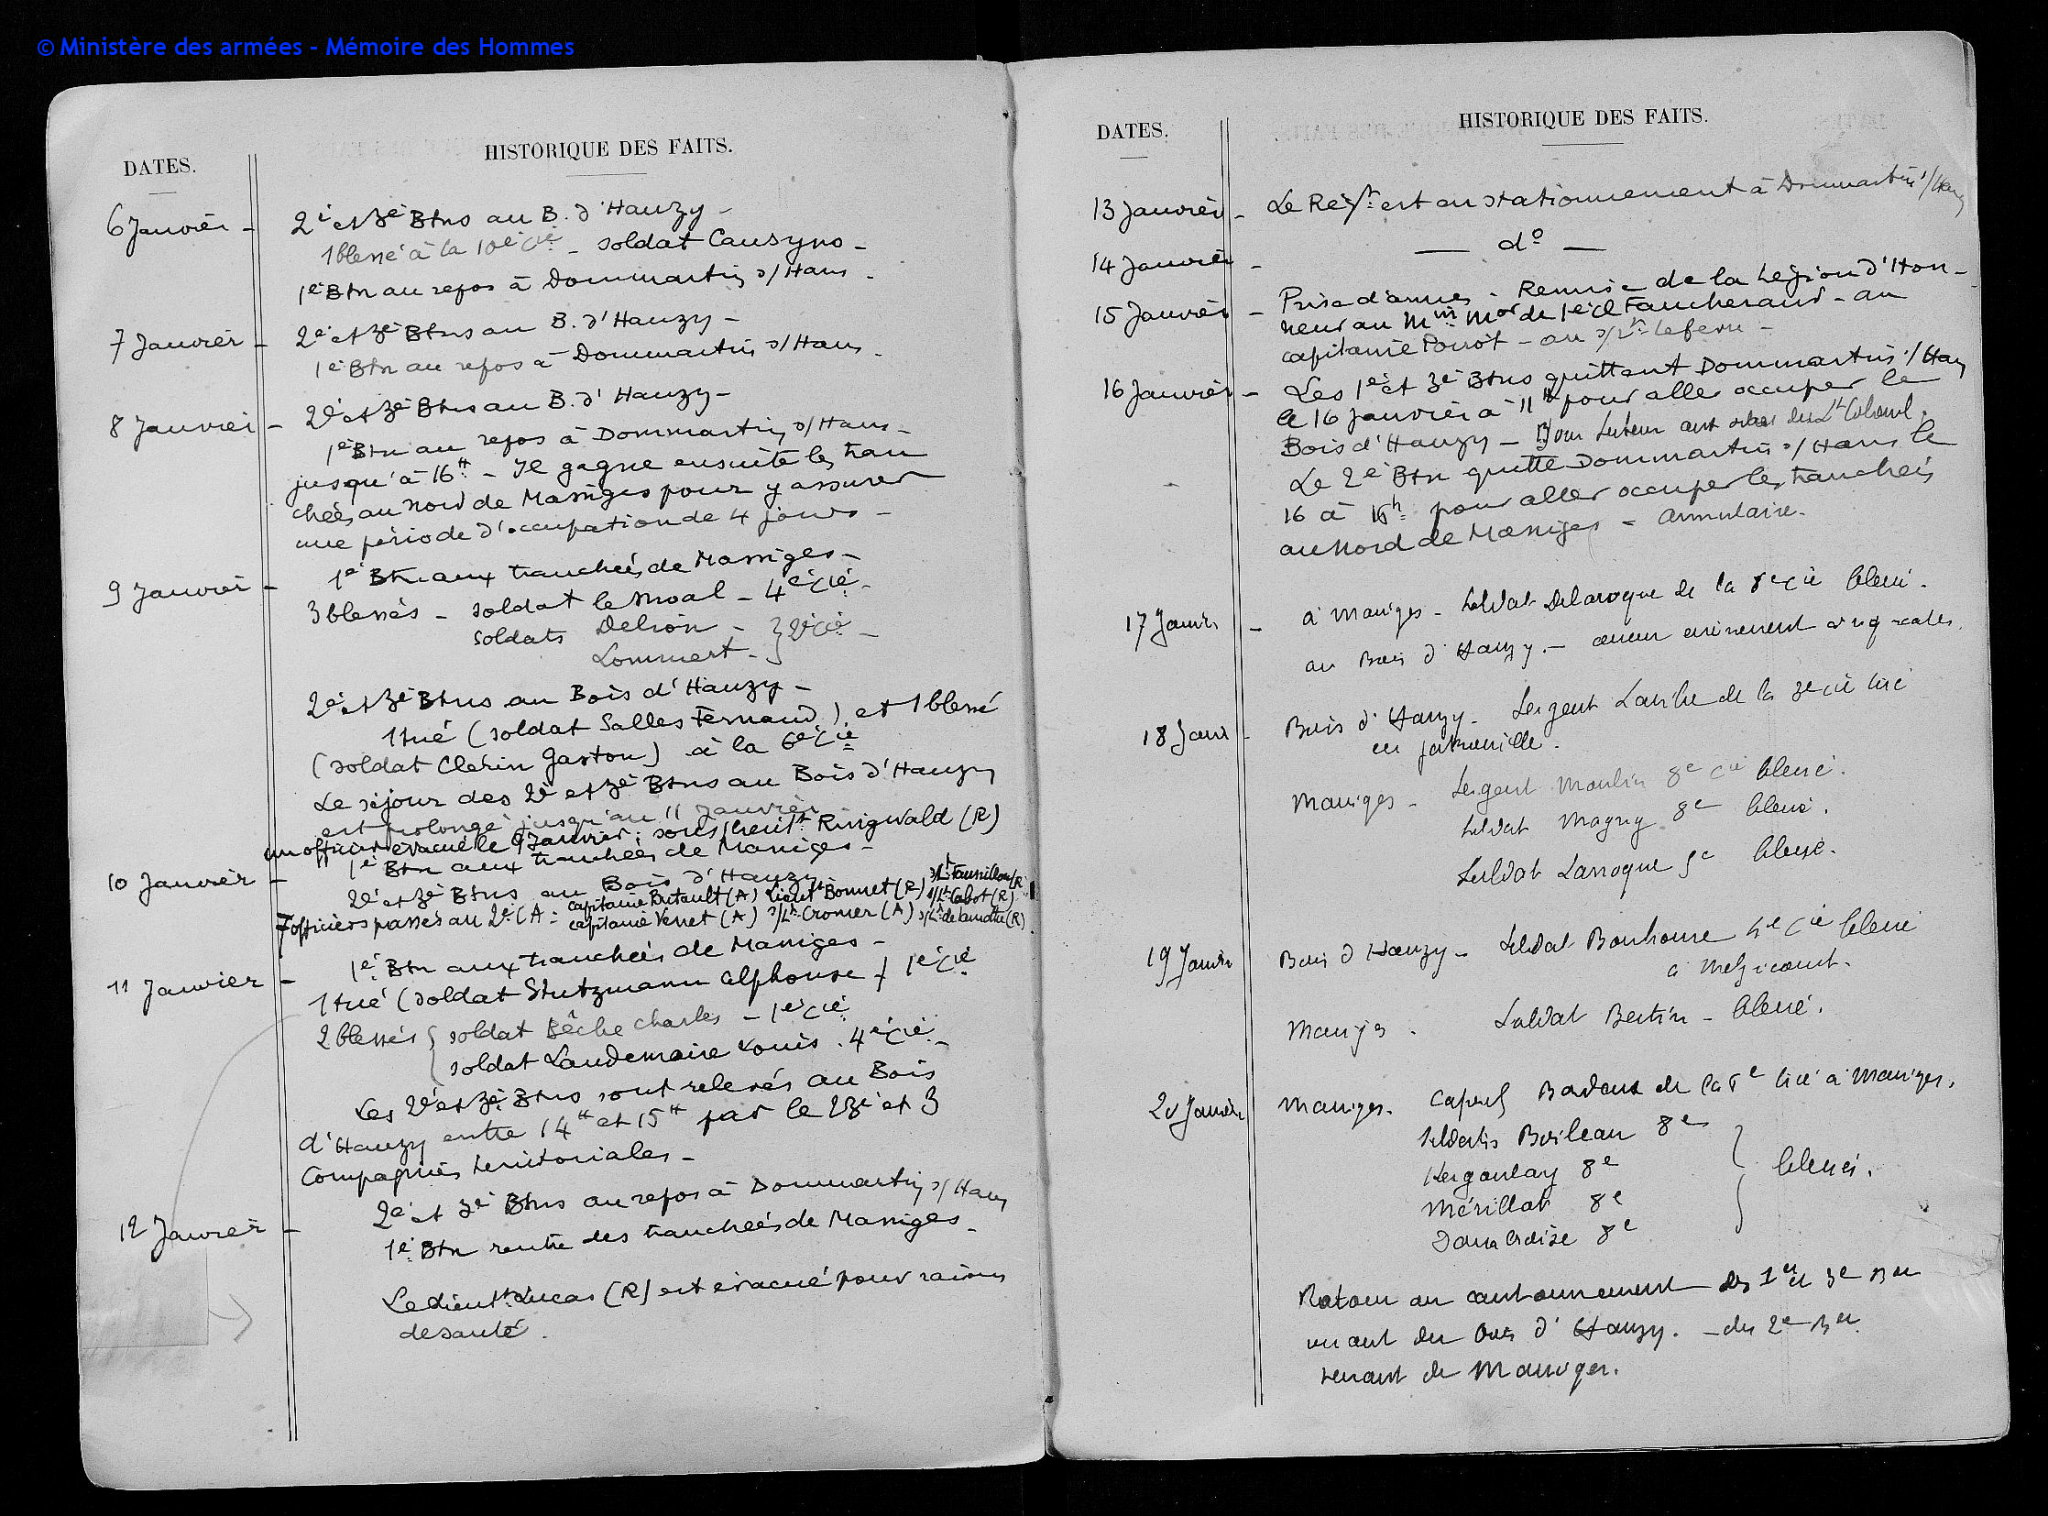 © Ministère des armées - Mémoire des Hommes
DATES.
HISTORIQUE DES FAITS.
6 Janvier - 2e et 3e Btns au B. d'Hauzy -
1 blessé à la 10e Cie - soldat
1e Btn au repos à Dommartin s/ Hans -
7 Janvier - 2e et 3e Btns au B. d'Hauzy -
1e Btn au repos à Dommartin s/ Hans -
8 Janvier - 2e et 3e Btns au B. d'Hauzy -
1e Btn au repos à Dommartin s/ Hans -
jusqu'à 16H - Il gagne ensuite les tran
chées au Nord de Massiges pour y assurer
une période d'occupation de 4 jours -
9 Janvier - 1e Btn aux tranchées de Massiges -
3 blessés - soldat le Moal - 4e Cie -
soldats Delion - } 2e Cie -
Lommert -
2e et 3e Btns au Bois d'Hauzy -
1 tué (soldat Salles Fernand) et 1 blessé
(soldat Clerin Gaston) à la 6e Cie
Le séjour des 2e et 3e Btns au Bois d'Hauzy
est prolongé jusqu'au 11 Janvier
un officier évacué le 9 Janvier : sous lieutt Ringwald (R)
10 Janvier - 1e Btn aux tranchées de Massiges -
2e et 3e Btns au Bois d'Hauzy
7 officiers passés au 2e CA : capitaine Brutault (A) Lieutt Bonnet (R) s/Lt Tausillon (R)
capitaine Vernet (A) s/Lt Cromer (A) s/Lt Cabot (R) s/Lt de Lamotte (R)
11 Janvier - 1e Btn aux tranchées de Massiges -
1 tué (soldat Stutzmann Alphonse) 1e Cie
2 blessés { soldat Bêche Charles - 1e Cie
soldat Laudemaire Louis . 4e Cie -
Les 2e et 3e Btns sont relevés au Bois
d'Hauzy entre 14H et 15H par le 2e et 3
Compagnies territoriales -
12 Janvier - 2e et 3e Btns au repos à Dommartin s/ Hans
1e Btn rentre des tranchées de Massiges -
Le Lieutt Lucas (R) est évacué pour raisons
de santé.
DATES.
HISTORIQUE DES FAITS.
13 Janvier - Le Régt est en stationnement à Dommartin s/ Hans
14 Janvier - — do —
15 Janvier - Prise d'armes - Remise de la Légion d'Hon-
neur au Min Mor de 1e Cl Faucheraud - au
capitaine Poirot - au s/Lt Lefevre -
16 Janvier - Les 1e et 3e Btns quittent Dommartin s/ Hans
le 16 Janvier à 11H pour aller occuper le
Bois d'Hauzy - Lt Colonel.
Le 2e Btn quitte Dommartin s/ Hans le
16 à 16h pour aller occuper les tranchées
au Nord de Massiges - Annulaire.
17 Janvier - à Massiges - Soldat Delaroque de la 8e Cie blessé.
au Bois d'Hauzy. - aucun événement à signaler.
18 Janv - Bois d'Hauzy - Sergent de la 3e Cie tué
en patrouille.
Massiges - Sergent Moulin 8e Cie blessé.
Soldat Magny 8e blessé.
Soldat Larroque 5e blessé.
19 Janvier Bois d'Hauzy - Soldat Bonhoure 4e Cie blessé
à Melzicourt.
Massiges - Soldat Bertin - blessé.
20 Janvier Massiges. Caporal Badeux de la tué à Massiges.
Soldats Boileau 8e
Kergoulay 8e
Mérillat 8e
8e } blessés.
Retour au cantonnement des 1er et 3e Bon
venant du Bois d'Hauzy. - du 2e Bon
venant de Massiges.